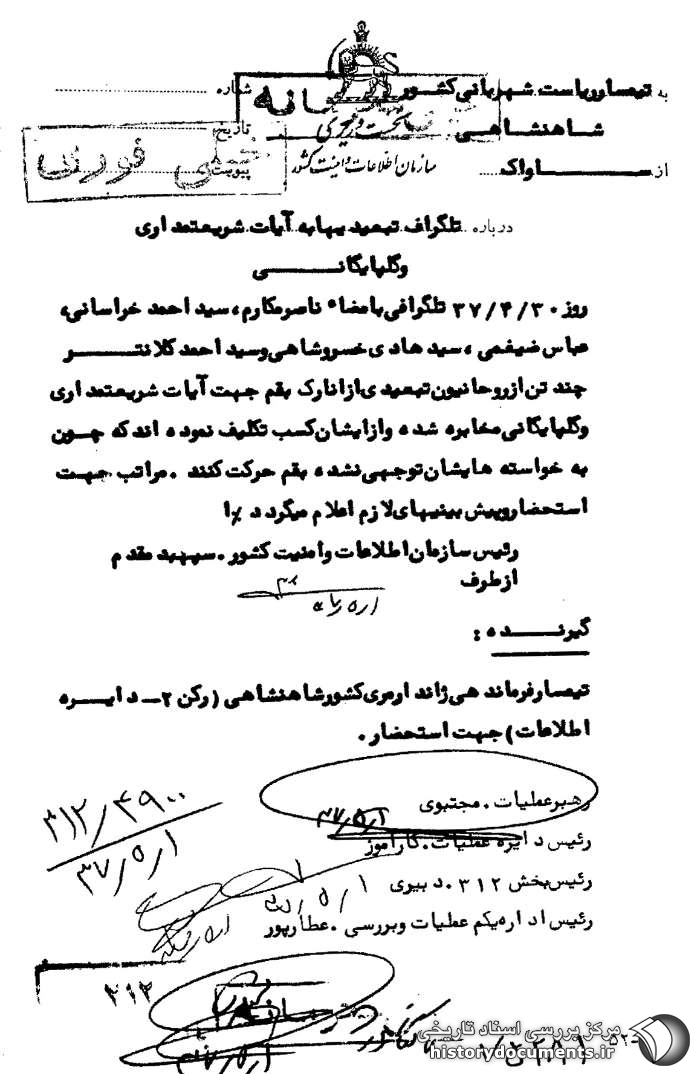 به تیمسار ریاست شهربانی کشور شماره
شاهنشاهی تاریخ
از ســـاواک پیوست
نخست وزیری
سازمان اطلاعات و امنیت کشور
خیلی فوری
درباره تلگراف تبعیدیها به آیات شریعتمداری
و گلپایگانـــی
روز ۳۷/۴/۳۰ تلگرافی بامضاء ناصر مکارم، سید احمد خراسانی،
عباس ضیغمی، سید هادی خسروشاهی و سید احمد کلانتـــر
چند تن از روحانیون تبعیدی از انارک بقم جهت آیات شریعتمداری
وگلپایگانی مخابره شده و از ایشان کسب تکلیف نموده اند که چـون
به خواسته هایشان توجهی نشده بقم حرکت کنند . مراتب جهـت
استحضار و پیش بینیهای لازم اعلام میگردد ٪ا
رئیس سازمان اطلاعات و امنیت کشور . سپهبد مقدم
از طرف
گیرنـــده :
تیمسار فرماندهی ژاندارمری کشور شاهنشاهی (رکن ۲ــ دایـره
اطلاعات) جهت استحضار .
۳۱۲/۴۹۰۰
۳۷/۵/۱
رهبر عملیات . مجتبوی
۳۷/۵/۱
رئیس دایره عملیات . کارآموز
رئیس بخش ۳۱۲ . دبیری
رئیس اداره یکم عملیات و بررسی . عطارپور
۳۱۲
۳۷/۵/۱
مرکز بررسی اسناد تاریخی
historydocuments.ir